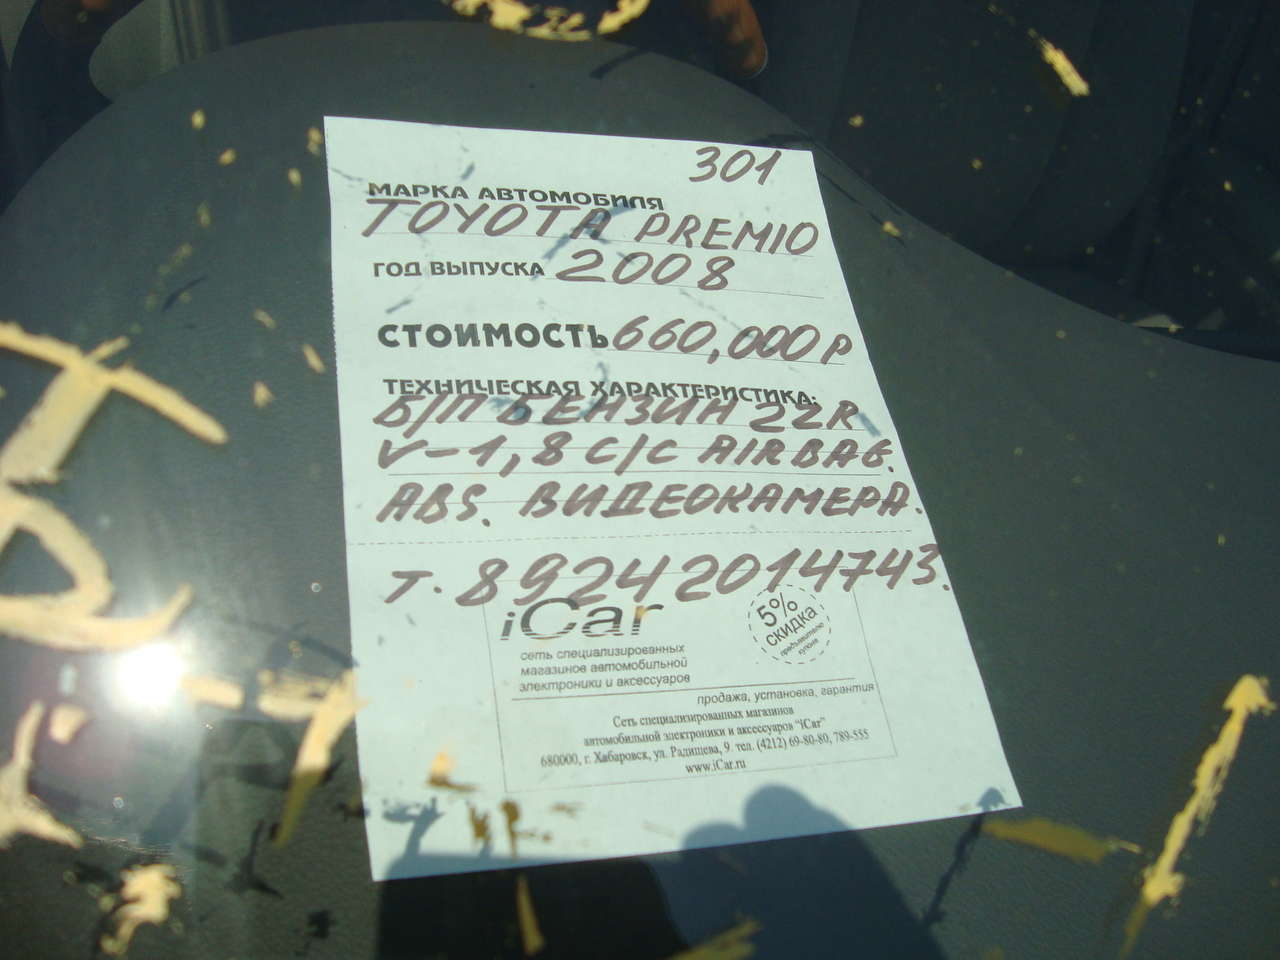 301
МАРКА АВТОМОБИЛЯ
TOYOTA PREMIO
ГОД ВЫПУСКА 2008
СТОИМОСТЬ 660,000 Р
ТЕХНИЧЕСКАЯ ХАРАКТЕРИСТИКА:
Б/П БЕНЗИН 2ZR
V-1,8 С/С AIRBAG.
ABS. ВИДЕОКАМЕРА.
Т. 89242014743.
iCar
5%
СКИДКА
предъявителю
купона
сеть специализированных
магазинов автомобильной
электроники и аксессуаров
продажа, установка, гарантия
Сеть специализированных магазинов
автомобильной электроники и аксессуаров "iCar"
680000, г. Хабаровск, ул. Радищева, 9 тел. (4212) 69-80-80, 789-555
www.iCar.ru